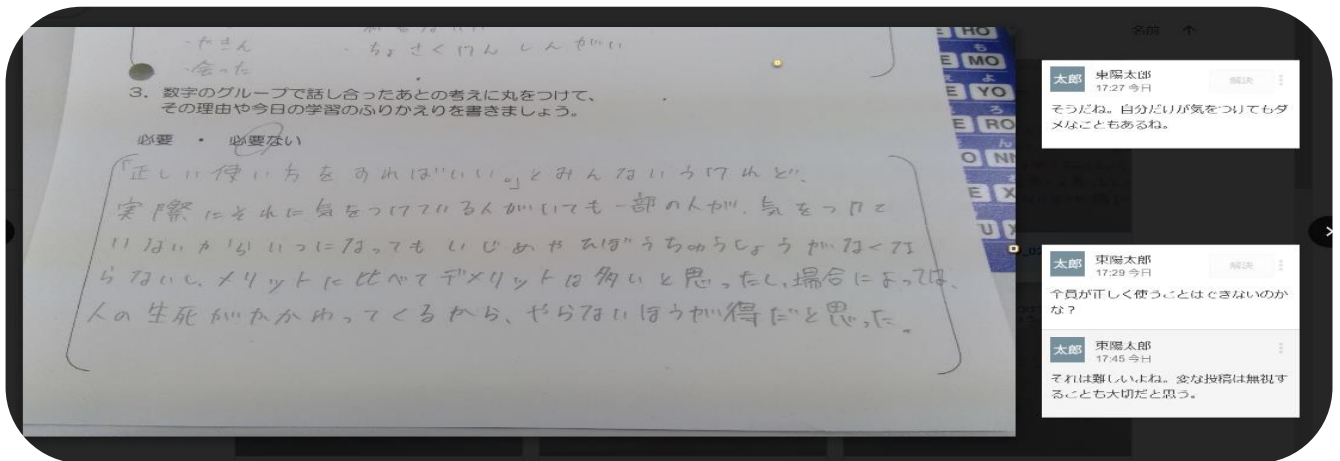 ・たさん
・ちょさくけんしんがい
・会った
3. 数字のグループで話し合ったあとの考えに丸をつけて、
その理由や今日の学習のふりかえりを書きましょう。
必要 ・ 必要ない
「正しい使い方をすればいい。」とみんないうけれど、
実際にそれに気をつけている人がいても一部の人が、気をつけて
いないからいつになってもいじめやひぼうちゅうしょうがなくな
らないし、メリットに比べてデメリットは多いと思ったし、場合によっては、
人の生死がかかわってくるから、やらないほうが得だと思った。
HO
も
E MO
よ
E YO
ろ
E RO
O NN
E X
U
名前 ↑
太郎 東陽太郎 解決
17:27 今日
そうだね。自分だけが気をつけてもダ
メなこともあるね。
太郎 東陽太郎 解決
17:29 今日
全員が正しく使うことはできないのか
な？
太郎 東陽太郎
17:45 今日
それは難しいよね。変な投稿は無視す
ることも大切だと思う。